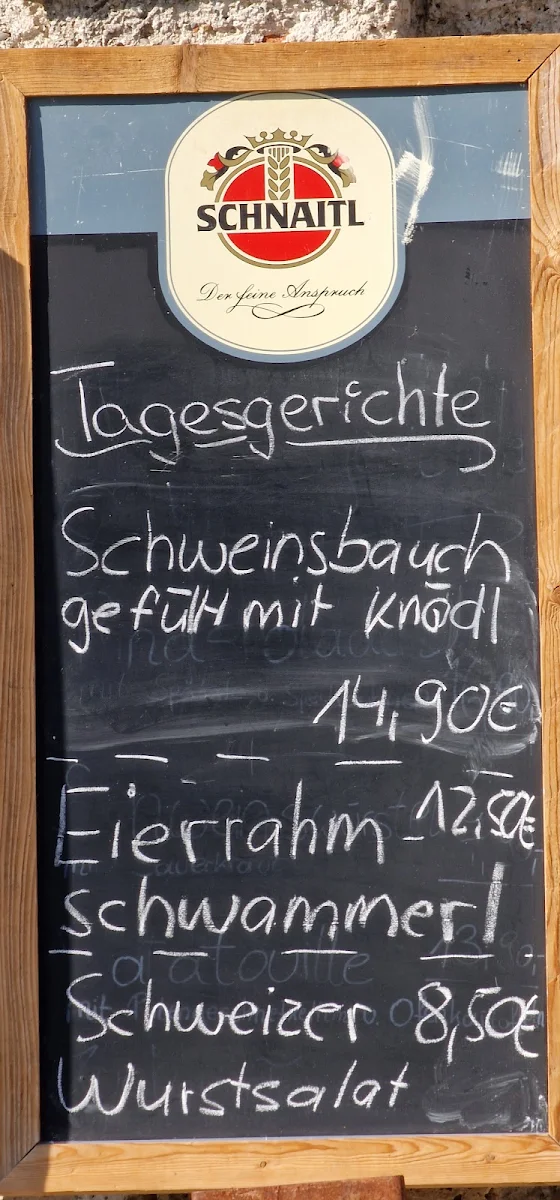 SCHNAITL
Der feine Anspruch
Tagesgerichte
Schweinsbauch
gefüllt mit Knödl
14,90€
Eierrahm- 12,50€
schwammerl
Schweizer 8,50€
Wurstsalat